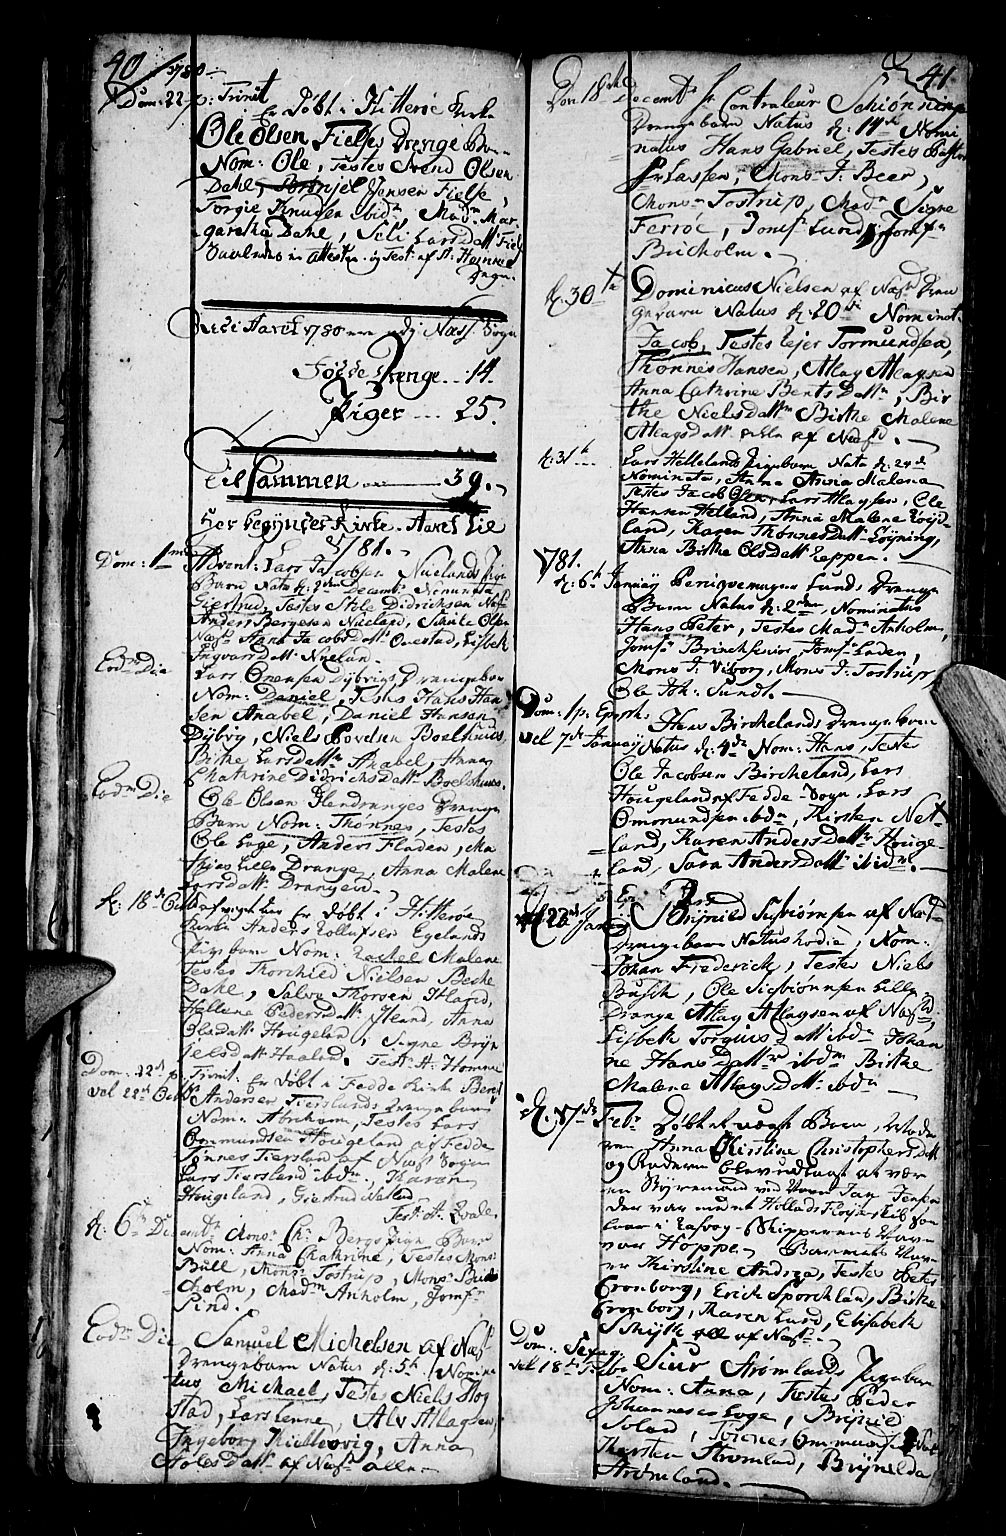 40
1780
Dom: 22 p: Trinit
Er Døbt i Hitterøe Kirke
Ole Olsen Fielses Drenge Barn
Nom: Ole, Testes Svend Olsen
Dahle, Jensen Fielse,
Torgie Knudsen ibid, Madm Mar
garetha Dahl, Seli Larsdatt Fiels
attesten Test: af Hr. Homme
1780 Næss Sogn
Fødde Drenge .. 14.
Piger ... 25.
Til Sammen 39.
Her begyndes Kirke-Aaret til
1781.
Dom: 1ma Advent: Lars Jacobsen Nuelands Pige
Barn Nata d: 2den Decemb: Nominata
Giertrud, Testes Atle Didrichsen Næss
Anders Bergesen Nueland,
Næss Jacobsdatt: Onestad, Lisbeth
Ingvarsdatt Nueland.
Eodm Die Lars Dybvigs Drengebarn
Nom: Daniel, Testes Hans Han
sen Anabel, Daniel Hansen
Dybvig, Niels Povelsen Boelhuus,
Birthe Larsdattr Anabel, Anna
Chathrine Didrichsdatt: Boelhuus.
Eodm Die Ole Olsen Drenge
Barn Nom: Thønnes, Testes
Ole Loge, Anders Fladen, Ma
thias Lille Drange, Anna Malene
Larsdatt: Drangeid.
d: 18de Octb: Er døbt i Hitterøe
Kirke Anders Tollufsen Egelands
Pigebarn Nom: Rachel Malene
Testes Thorchild Nielsen Beche
Dahl, Salve Thorsen Stland,
Hellene Pedersdatt: Stland, Anna
Olsdatt: Hougeland, Signe Bryn
jelsdatt: Haaland. Test: Hr. Homme
Dom: 22de p: Trinit: Er døbt i Fedde Kirke Bernt
vel 22de Octb: Andersen Tierslands Drengebarn
Nom: Abraham, Testes Lars
Ommundsen Hougeland af Fedde
Tønnes Tiersland af Næss Sogn
Lars Tiersland ibdm, Karen
Hougeland, Giertrud Netland
Test: Hr. Lodde.
d: 6te Decemb: Mons: Ch: Bergs Pige Barn
Nom: Anna Chathrine, Testes Mons:
Bull, Mons: Tostrup, Mons: Buch
holm, Madm Anholm, Jomfr
Lind.
Eodm Die Samuel Michelsen af Næss
Drengebarn Natus d: 5te Nomina
tus Michael, Testes Niels Flog
stad, Lars Lenne, Alv Atlagsen,
Ingeborg Kiellesvig, Anna
Atlesdatt: af Næss alle.
41.
Den 18de Decembr Hr Controleur Schiønnings
Drengebarn Natus d: 14de Nomi
natus Hans Gabriel, Testes Pastor
Hr Lassen, Mons: J. Beer,
Mons: Tostrup, Madm Signe
Ferroe, Jomf: Lund, Jomfr
Bucholm.
d: 30te Dominicus Nielsen af Næss Dren
gebarn Natus d: 20de Nominat:
Jacob, Testes Tormundsen,
Thønnes Hansen, Atlag Atlagsen,
Anna Cathrine Berntsdattr, Bir
the Nielsdattr Birthe Malene
Atlagsdatt alle af Næss.
d: 31te Lars Hellelands Pigebarn Nata d: 24de
Nominata, Anna Malena
Testes Jacob Olsen, Lars Atlagsen, Ole
Hansen Helland, Anna Malene
land, Karen Thønnesdatt: Løyning,
Anna Birthe Olsdatt: Leppen.
1781.
d: 6te Januarij Peruqvemager Lunds Drenge
Barn Natus d: 2den, Nominatus
Hans Peter, Testes Madm Anholm,
Jomfr Jomfr Loden,
Mons: J: Viborg, Mons: J: Tostrup,
Ole Joh: Sundt.
Dom: 1 p: Epiph: Hans Birchelands Drengebarn
vel 7de Januarij Natus d: 4de Nom: Hans, Testes
Ole Jacobsen Bircheland, Lars
Hougeland af Fedde-Sogn, Lars
Ommundsen ibdm, Kirsten Net-
land, Karen Andersdattr Houge-
land, Sara Andersdatt: ibidm.
d: 22de Januarij Brynild Sigbiørnsen af Næss
Drengebarn Natus hodie, Nom:
Johan Frederich, Testes Niels
Busch, Ole Sigbiørnsen Lille
Drange Atlag Atlagsen af Næss,
Lisbeth Torgiusdatt ibdm Johan
ne Hansdatt: ibdm Birthe
Malene Atlagsdatt: ibdm
d: 17de Febr: Døbt et uægte Barn, Mode
ren Anna Kirstine Christophersdatt
og Faderen blev udlagt at vær
en Styrmand ved Navn Jan Jensen
der var med et Hollands Fløytskib
laae i Rasvog Skipperens Navn
var Hoppe Barnets Navn
er Kirstine Andrea, Testes Peter
Cronborg, Erich Sporchland, Birthe
Cronborg, Karen Lund, Elisabeth
Schytte alle af Næss.
Dom: Sexag: Siur Strømlands Pigebarn
vel 18de Febr: Nom: Anna, Testes Peder
Johannesen Loge, Brynild
Solad, Tønnes Ommundsen
Thorsten Strømland, Brynilda
Strømland.